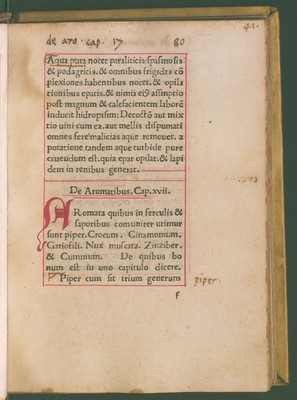 41.
de aro. cap. 17 60
Aqua pura nocet paraliticis: spasmosis
& podagricis. & omnibus frigidas cō
plexiones habentibus nocet. & opila
tionibus epatis. & nimia ei9 assumptio
post magnum & calefacientem laborē
inducit hidropisim: Decoctō aut mix
tio uini cum ea. aut mellis dispumati
omnes fere malicias aque remouet. a
potatione tandem aque turbide pure
cauendum est. quia epar opilat. & lapi
dem in renibus generat.
De Aromatibus. Cap. xvii.
AROmata quibus in ferculis &
saporibus comuniter utimur
sunt piper. Crocum. Cinamomum.
Gariofili. Nux muscata. Zinziber.
& Cuminum. De quibus bo
num est in uno capitulo dicere.
Piper cum sit trium generum
piper.
F